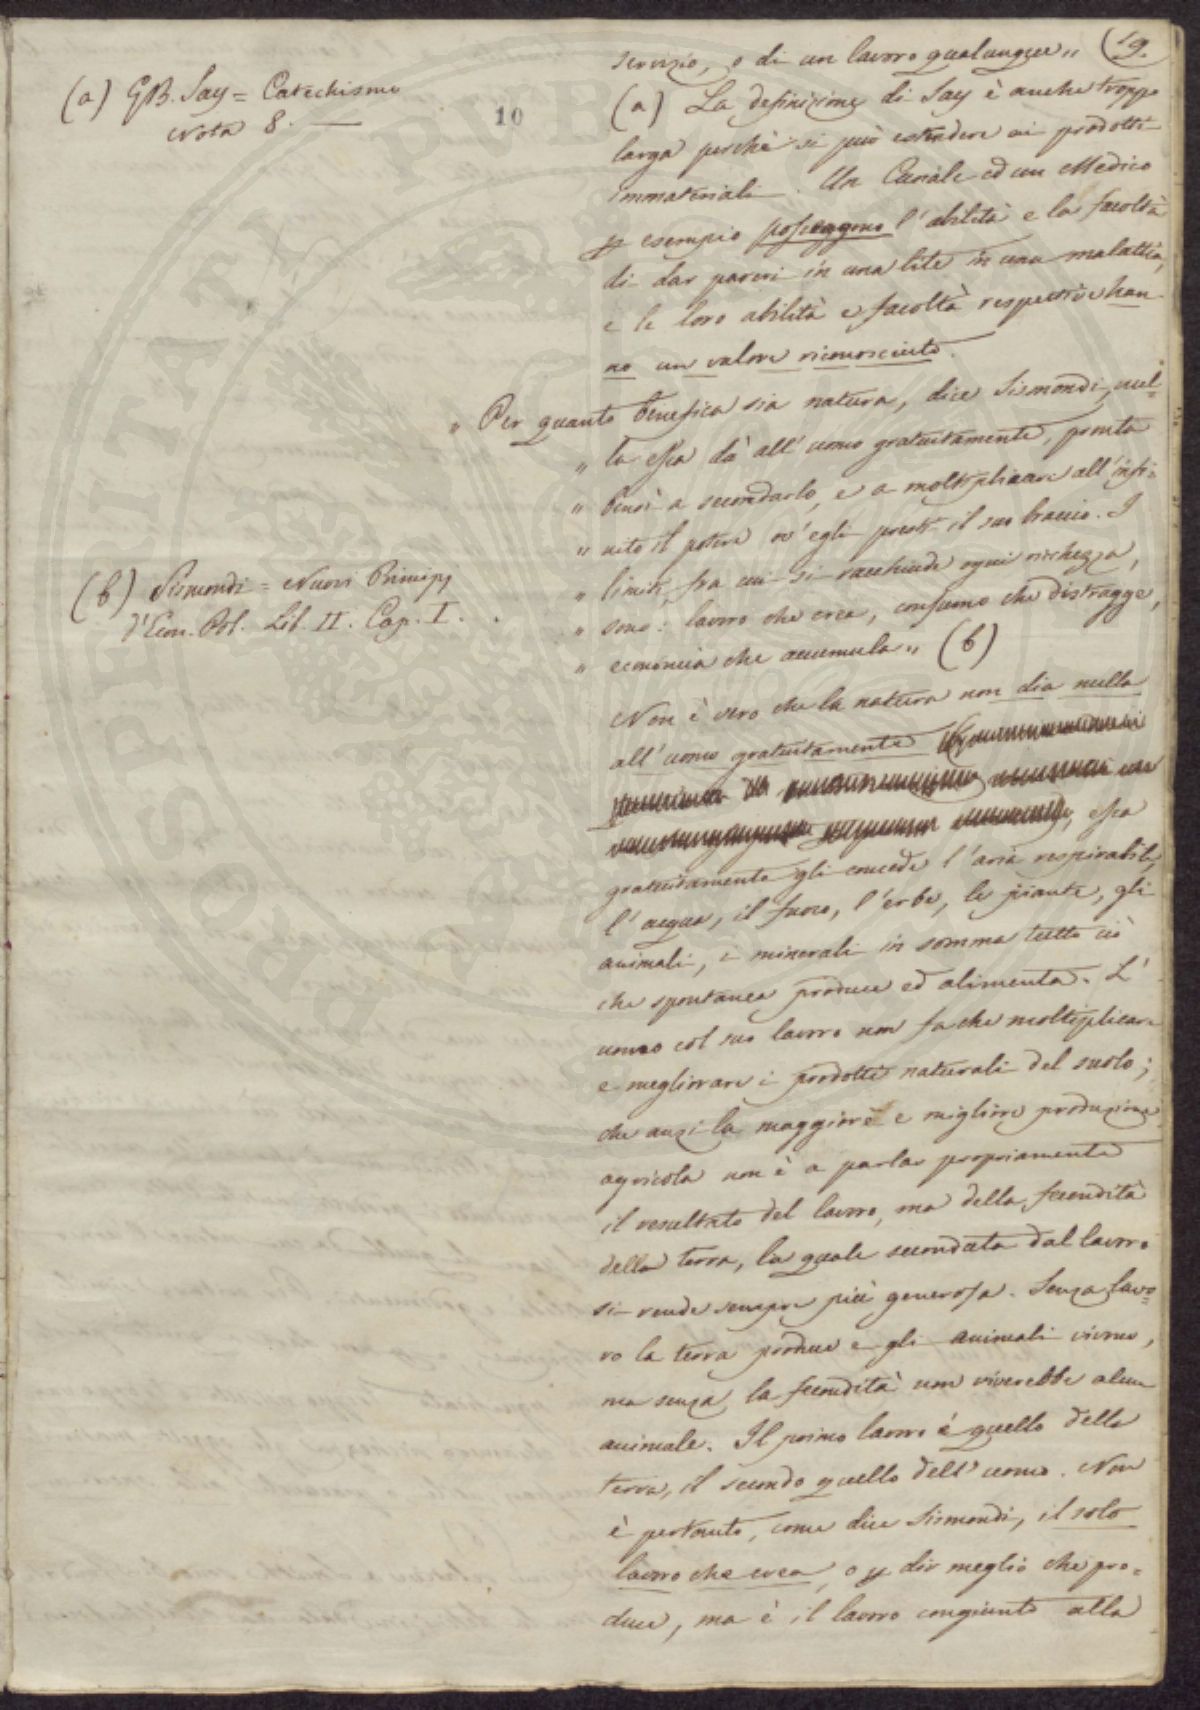 19.
10
(a) GB. Say = Catechismo
Nota 8. —
servizio, o di un lavoro qualunque „
(a) La definizione di Say è anche troppo
larga perchè si può estendere ai prodotti
immateriali. Un Curiale ed un Medico
p esempio posseggono l'abilità e la facoltà
di dar pareri in una lite in una malattia,
e le loro abilità e facoltà respettive han
no un valore riconosciuto.
„ Per quanto benefica sia natura, dice Sismondi, nul=
„ la essa dà all'uomo gratuitamente, pronta
„ bensì a secondarlo, e a moltiplicare all'infi=
„ nito il potere ov'egli presti il suo braccio. I
„ limiti, fra cui si racchiude ogni richezza,
„ sono: lavoro che crea, consumo che distragge,
„ economia che accumula „ (b)
(b) Sismondi = Nuovi Principj
d'Econ. Pol. Lib. II. Cap. I.
Non è vero che la natura non dia nulla
all'uomo gratuitamente
, essa
gratuitamente gli concede l'aria respirabile,
l'acqua, il fuoco, l'erbe, le piante, gli
animali, i minerali in somma tutto ciò
che spontanea produce ed alimenta. L'
uomo col suo lavoro non fa che moltiplicare
e migliorare i prodotti naturali del suolo;
che anzi la maggiore e migliore produzione
agricola non è a parlar propriamente
il resultato del lavoro, ma della fecondità
della terra, la quale secondata dal lavoro
si rende sempre più generosa. Senza lavo=
ro la terra produce e gli animali vivono,
ma senza la fecondità non viverebbe alcun
animale. Il primo lavoro è quello della
terra, il secondo quello dell'uomo. Non
è pertanto, come dice Sismondi, il solo
lavoro che crea, o p dir meglio che pro=
duce, ma è il lavoro congiunto alla